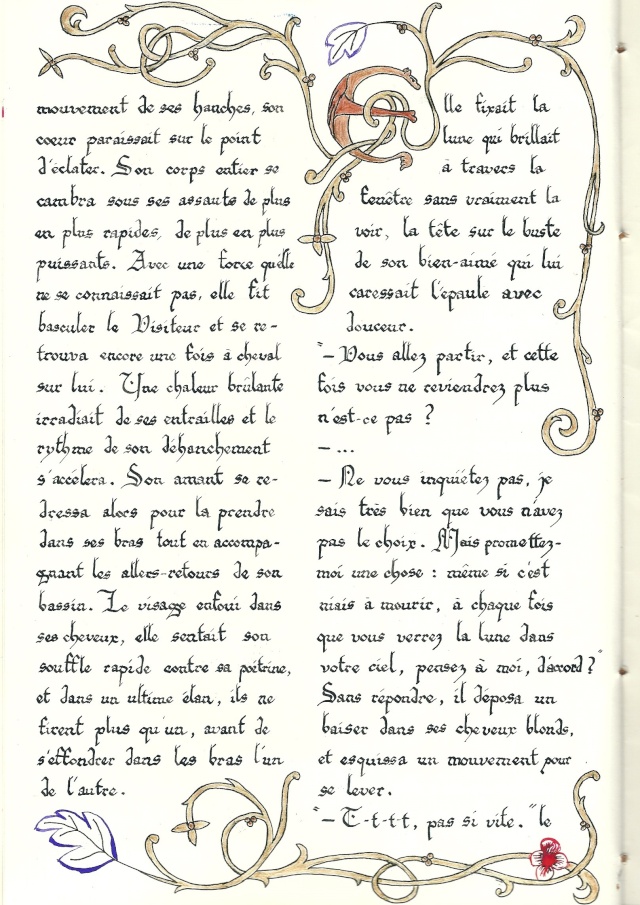 mouvement de ses hanches, son
coeur paraissait sur le point
d'éclater. Son corps entier se
cambra sous ses assauts de plus
en plus rapides, de plus en plus
puissants. Avec une force qu'elle
ne se connaissait pas, elle fit
basculer le Visiteur et se re-
trouva encore une fois à cheval
sur lui. Une chaleur brûlante
irradiait de ses entrailles et le
rythme de son déhanchement
s'accéléra. Son amant se re-
dressa alors pour la prendre
dans ses bras tout en accompa-
gnant les allers-retours de son
bassin. Le visage enfoui dans
ses cheveux, elle sentait son
souffle rapide contre sa poitrine,
et dans un ultime élan, ils ne
firent plus qu'un, avant de
s'effondrer dans les bras l'un
de l'autre.
Elle fixait la
lune qui brillait
à travers la
fenêtre sans vraiment la
voir, la tête sur le buste
de son bien-aimé qui lui
caressait l'épaule avec
douceur.
"– Vous allez partir, et cette
fois vous ne reviendrez plus
n'est-ce pas ?
– ...
– Ne vous inquiétez pas, je
sais très bien que vous n'avez
pas le choix. Mais promettez-
moi une chose : même si c'est
niais à mourir, à chaque fois
que vous verrez la lune dans
votre ciel, pensez à moi, d'accord ?"
Sans répondre, il déposa un
baiser dans ses cheveux blonds,
et esquissa un mouvement pour
se lever.
"– T-t-t-t, pas si vite." le